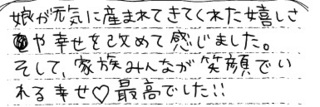 娘が元気に産まれてきてくれた嬉しさ
や幸せを改めて感じました。
そして、家族みんなが笑顔でい
れる幸せ♡最高でした!!